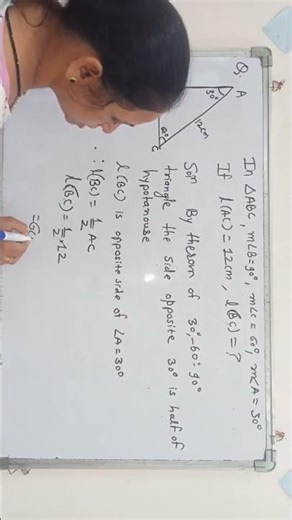 Q.
In △ABC, m∠B=90°, m∠C=60°, m∠A=30°
If l(AC)=12cm, l(BC)=?
A
30°
12cm
60°
C
Soln By therom of 30°-60°-90°
triangle the side opposite 30° is half of
hypotanouse
l(BC) is opposite side of ∠A=30°
∴ l(BC)=1/2 AC
l(BC)=1/2×12
=6c